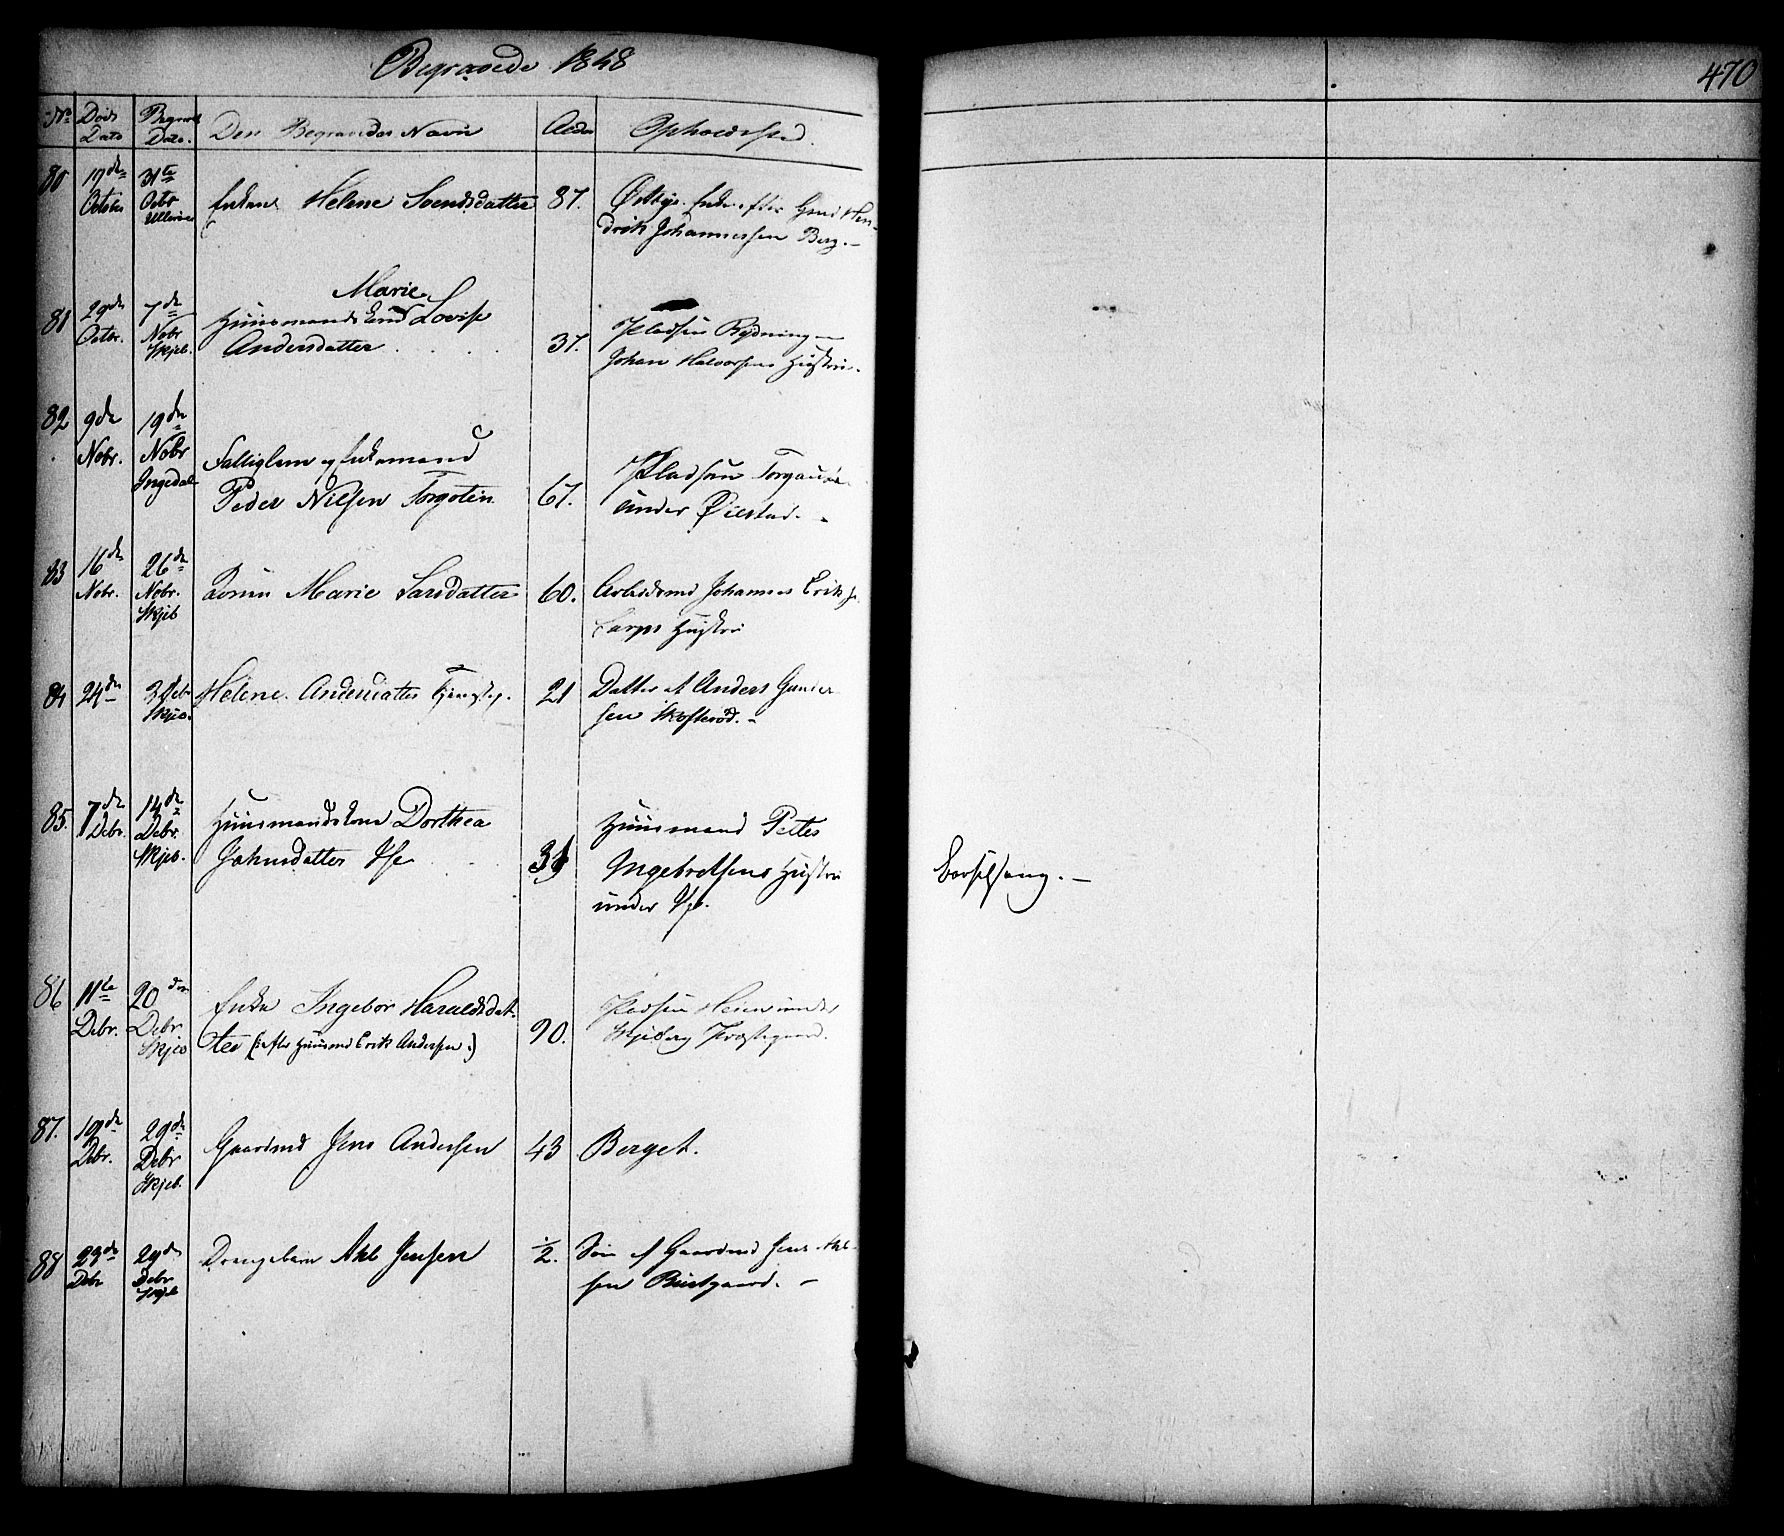 Begravede 1848
470
No Døds Dato Begrav. Dato. Den Begravedes Navn Alder Opholdssted.
80 17de October 31te Octbr Ullerøe Enken Helene Svendsdatter 87.
Østbye. Enke efter Gmd Hen-
drik Johannessen Berg. -
81 29de Octbr. 7de Nobr Skjeb. Huusmandskond Marie Lovise
Andersdatter . . . 37.
Pladsen Rydning -
Johan Halvorsens Hustru.
82 9de Nobr. 19de Nobr Ingedal Fattiglem og Enkemand
Peder Nilsen Torgoten 67.
Pladsen
under Øilestad. -
83 16de Nobr. 26de Nobr. Skjeb Marie Larsdatter 60.
Arbeidsmd Johannes Eriks
Sarps Hustru
84 24de 3 Debr Skjeb. Helene Andersdatter Tjenestep. 21
Datter af Anders Gunder
sen Skofterød. -
85. 7de Debr. 14de Debr. Skjeb. Huusmandskone Dorthea
Johnsdatter . .
Huusmand Peter
Ingebretsens Hustru
under
Barselseng. -
86 11te Debr. 20de Debr Skjeb Enke Ingebor Haraldsdat-
ter (: efter Huusmd Erik Andersen :) 90.
Pladsen Heien under
Skjeberg Præstegaard.
87. 19de Debr. 29de Debr Skjeb. Gaardmd Jens Andersen 43 Berget.
88 23de Debr 29de Debr Skjeb Drengebarn Axl Jensen ½.
Søn af Gaardmd Jens Axl-
sen Buskgaard. -